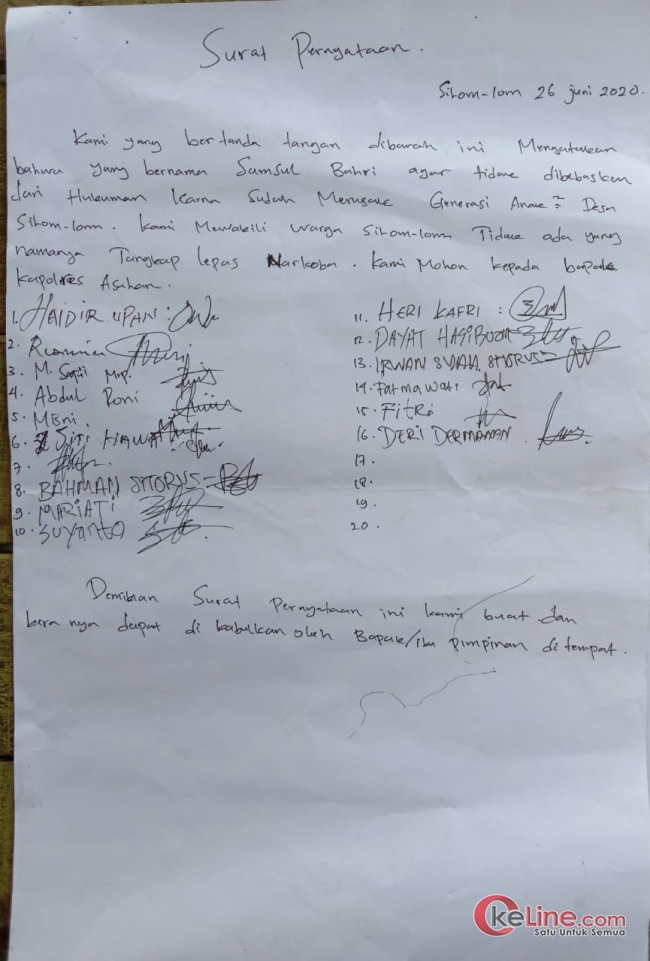 Surat Pernyataan.
Silom-lom 26 juni 2020.
Kami yang bertanda tangan dibawah ini Mengatakan
bahwa yang bernama Samsul Bahri agar tidak dibebaskan
dari Hukuman Karna Sudah Merusak Generasi Anak² Desa
Silom-lom. Kami Mewakili warga Silom-lom Tidak ada yang
namanya Tangkap lepas Narkoba. Kami Mohon kepada bapak
Kapolres Asahan.
1. HAIDIR UPAN :
2.
3. M. Sapii Mrp.
4. Abdul Roni
5. MENi.
6. SITI HAWA
7.
8. BAHMAN SITORUS =
9. MARIATI
10. SUYANTO
11. HERI KAFRI :
12. DAYAT HASIBUAN
13. IRWAN SITORUS =
14. Fatmawati
15. FiTRi
16. DERI DERMAWAN.
17.
18.
19.
20.
Demikian Surat Pernyataan ini kami buat dan
kira nya dapat di kabulkan oleh Bapak/ibu pimpinan di tempat.
OkeLine.com
Satu Untuk Semua